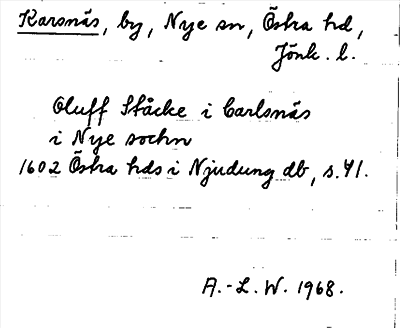 Karsnäs, by, Nye sn, Östra hd,
Jönk. l.
Oluff Ståcke i Carlsnäs
i Nye sochn
1602 Östra hds i Njudung db, s. 41.
A.-L. W. 1968.